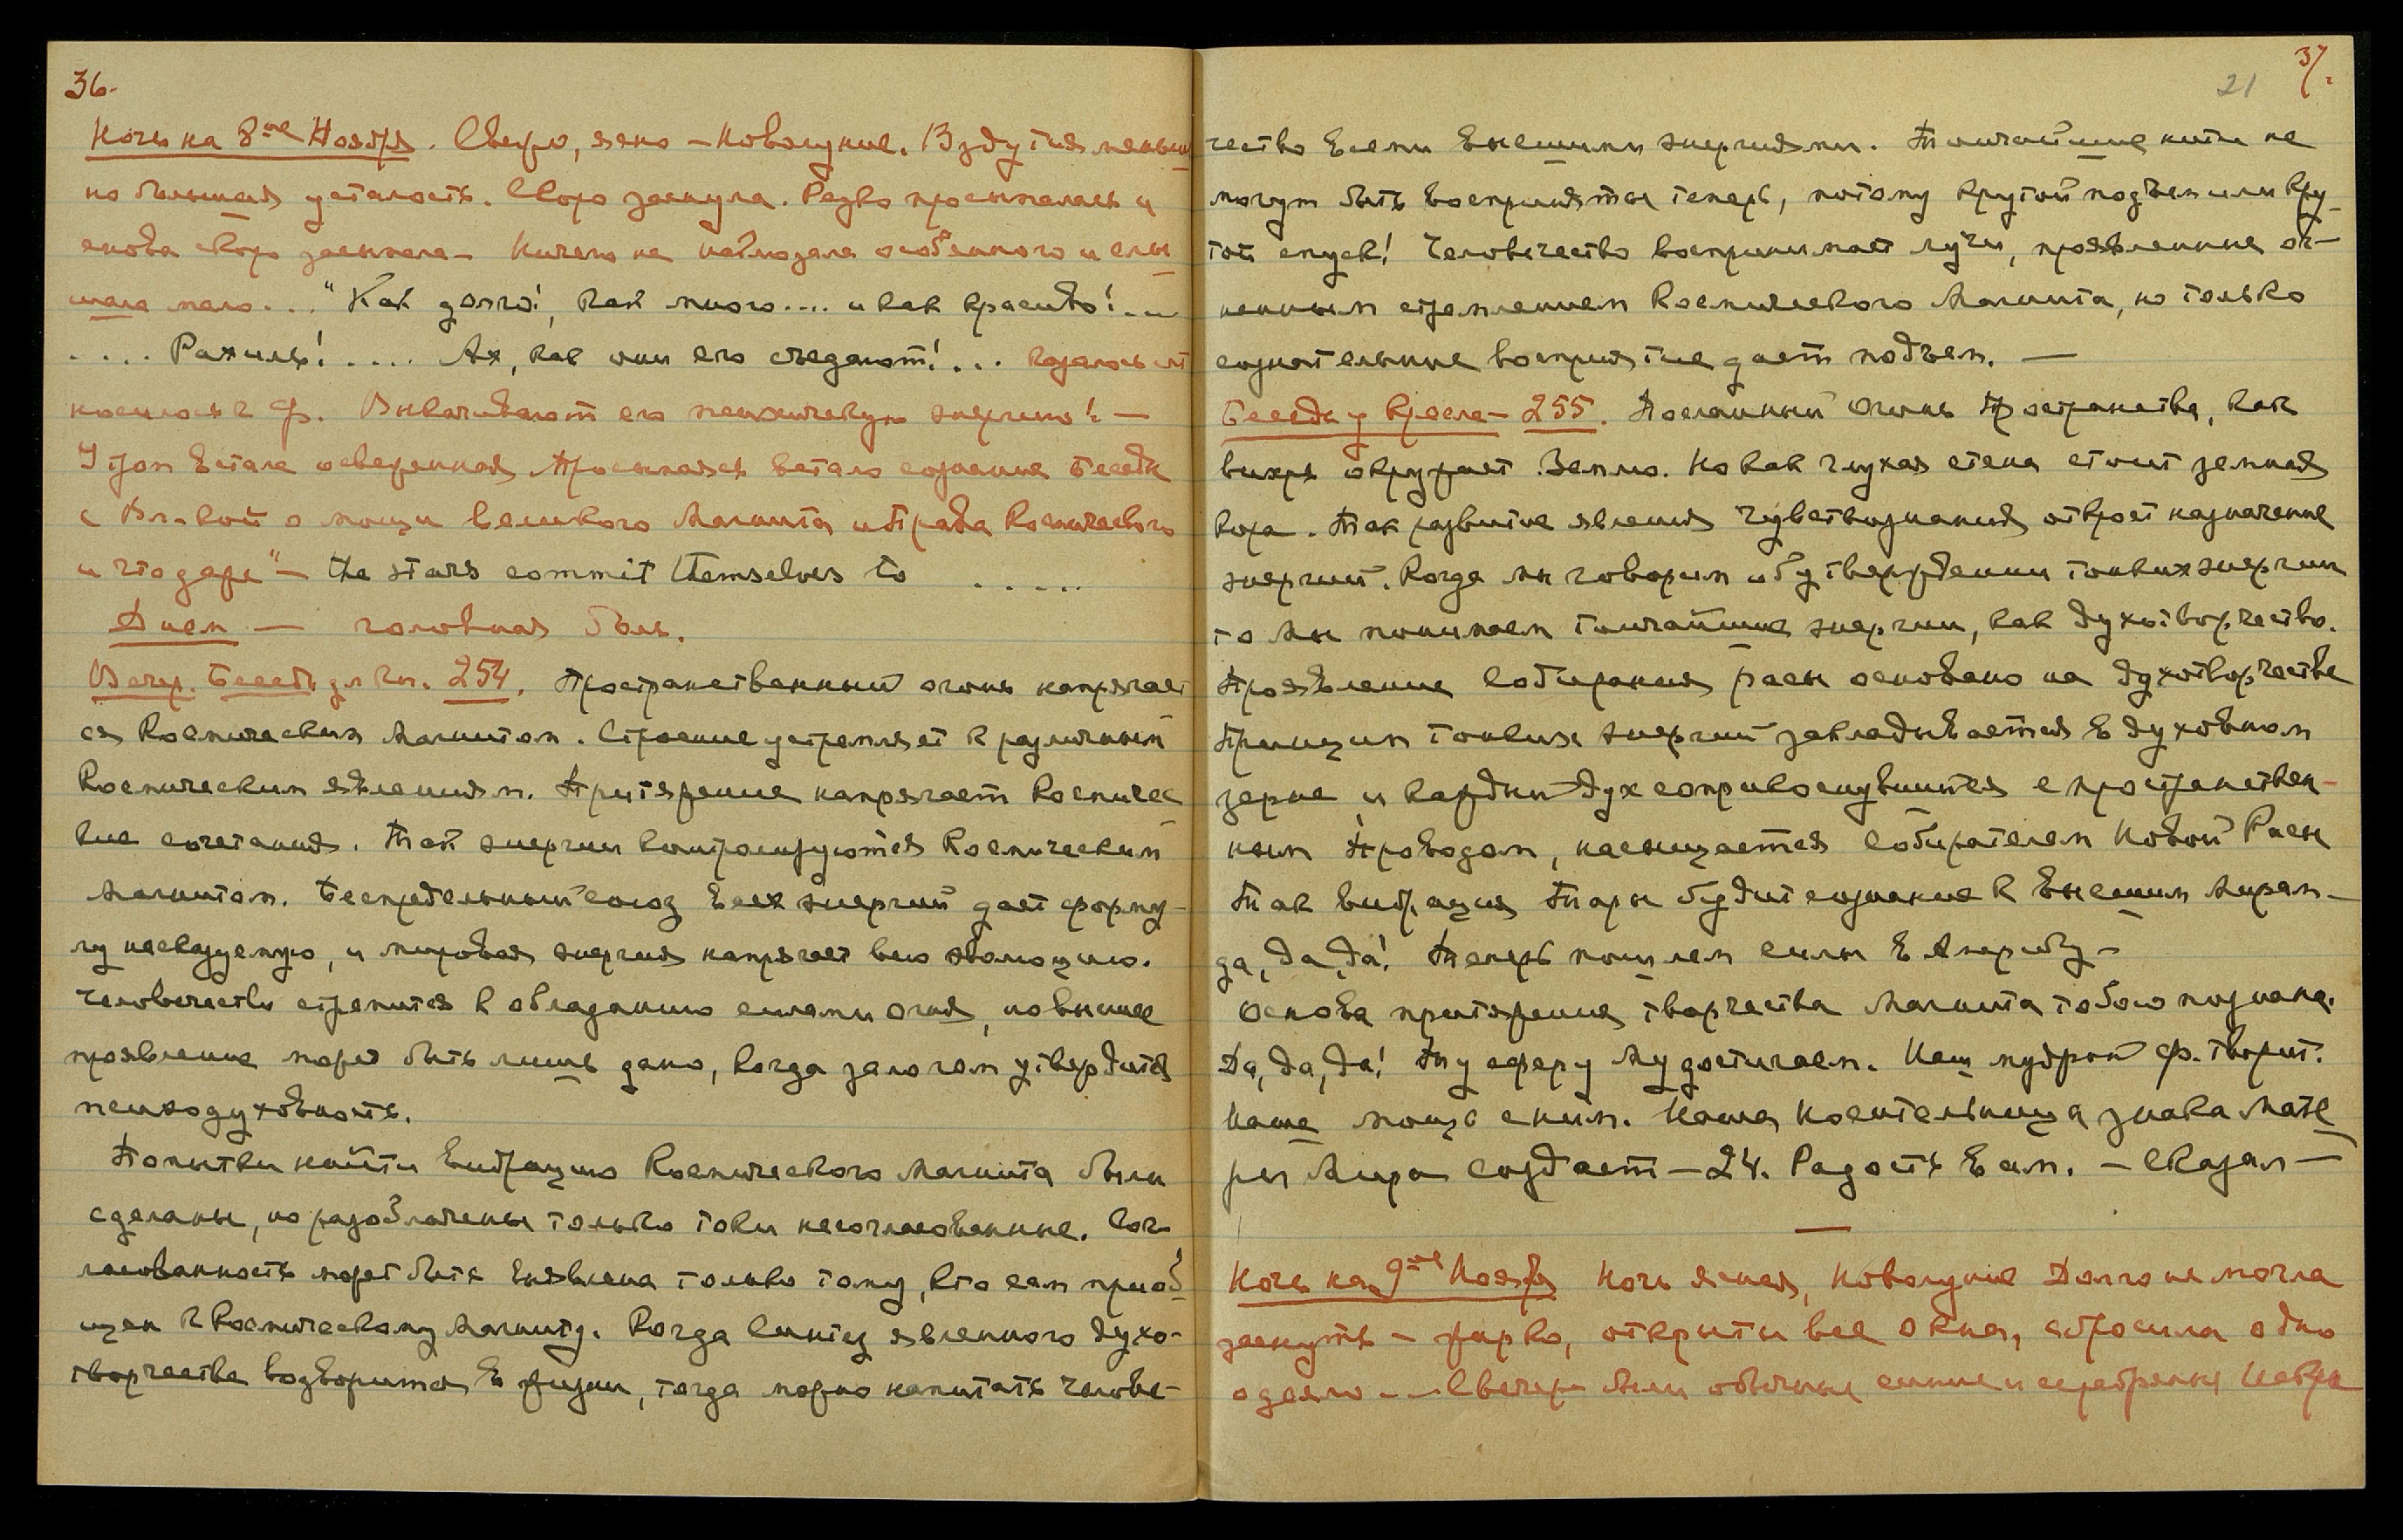 36.
Ночь на 8ое Ноября. Свежо, ясно – Новолуние. Вздутия меньше
но большая усталость. Скоро заснула. Редко просыпалась и
снова скоро засыпала – Ничего не наблюдала особенного и слы
шала мало... "Как долго!, как много.... и как красиво!...
.... Рахиль!.... Ах, как они его съедают!... Казалось от
носилось к Ф. Выкачивают его психическую энергию! –
Утром встала освеженная. Просыпаясь встало сознание Беседы
с Вл-кой о мощи Великого Магнита и Права Космического
и что даже" – the stars commit themselves to .....
Днем – головная боль.
Вечер. Беседа 254. Пространственный огонь напрягает
ся Космическим Магнитом. Строение устремляет к различным
Космическим явлениям. Притяжение напрягает Космичес
кие сочетания. Так энергии контролируются Космическим
Магнитом. Беспредельный союз всех энергий дает форму-
лу несказуемую, и мировая энергия напрягает всю эволюцию.
Человечество стремится к обладанию силами огня, но высшее
проявление может быть лишь дано, когда залогом утвердится
психодуховность.
Попытки найти вибрацию Космического Магнита были
сделаны, но разоблачены только токи несогласованные. Сог
ласованность может быть выявлена только тому, кто сам приоб
щен к Космическому Магниту. Когда синтез явленного духо-
творчества водворится в жизни, тогда можно напитать челове-
21 37.
чество всеми высшими энергиями. Тончайшие нити не
могут быть восприняты теперь, потому крутой подъем или кру-
той спуск! Человечество воспринимает лучи, проявленные ог-
ненным стремлением Космического Магнита, но только
сознательное восприятие дает подъем. –
Беседа у Кресла – 255. Посланный Огонь Пространства, как
вихрь окружает Землю. Но как глухая стена стоит земная
кора. Так развитие явления чувствознания откроет назначение
энергий. Когда мы говорим об утверждении тонких энергий
то мы понимаем тончайшие энергии, как духотворчество.
Проявление Собирания расы основано на духотворчестве
Принцип тонких энергий закладывается в духовном
зерне, и каждый дух соприкоснувшийся с пространствен-
ным Проводом, насыщается Собирателем Новой Расы
Так вибрация Тары будит сознание к Высшим Мирам –
да, да, да! Теперь пошлем силы в Америку –
Основа притяжения творчества Магнита тобою познана.
Да, да, да! Ту сферу Мы достигаем. Наш мудрый Ф. творит.
Наша мощь с ним. Наша Носительница знака Мате
ри Мира создает – 24. Радость Вам. – Сказал –
Ночь на 9ое Ноября Ночь ясная, Новолуние Долго не могла
заснуть – жарко, открыты все окна, сбросила одно
одеяло... С вечера были обычные синие и серебряные Искры